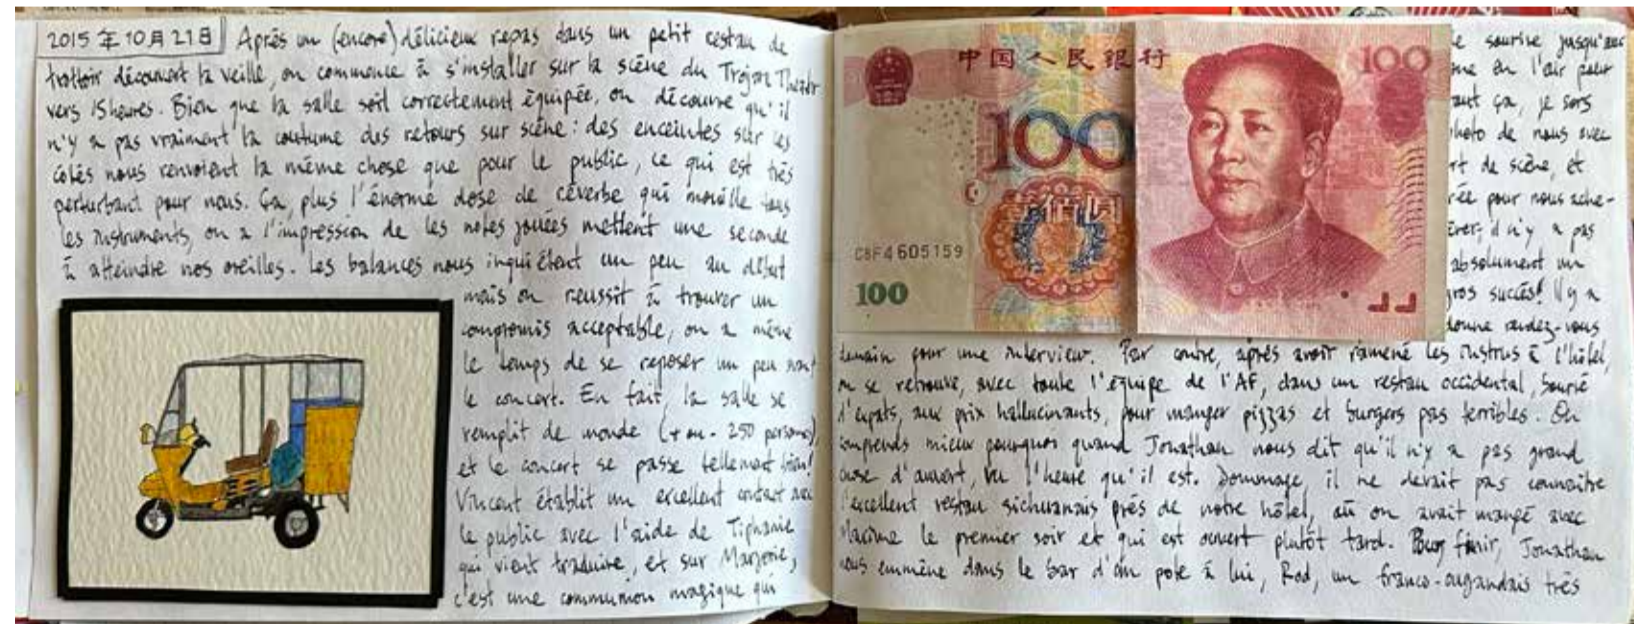 2015年10月21日 Après un (encore) délicieux repas dans un petit restau de
trottoir découvert la veille, on commence à s'installer sur la scène du Trojan Théâtr
vers 15heures. Bien que la salle soit correctement équipée, on découvre qu'il
n'y a pas vraiment la coutume des retours sur scène : des enceintes sur les
côtés nous renvoient la même chose que pour le public, ce qui est très
perturbant pour nous. Ça, plus l'énorme dose de réverbe qui mouille tous
les instruments, on a l'impression de les notes jouées mettent une seconde
à atteindre nos oreilles. Les balances nous inquiètent un peu au début
mais on réussit à trouver un
compromis acceptable, on a même
le temps de se reposer un peu avant
le concert. En fait, la salle se
remplit de monde (+ ou - 250 personnes)
et le concert se passe tellement bien!
Vincent établit un excellent contact avec
le public avec l'aide de Tiphanie
qui vient traduire, et sur Marjorie,
c'est une communion magique qui
中国人民银行
100
100
壹佰圆
C8F4605159
100
e sourire jusqu'aux
me en l'air pour
aut ça, je sors
photo de nous avec
rt de scène, et
rée pour nous ache-
érer, il n'y a pas
absolument un
gros succès! Il y a
donne rendez-vous
demain pour une interview. Par contre, après avoir ramené les instrus à l'hôtel,
on se retrouve, avec toute l'équipe de l'AF, dans un restau occidental, bourré
d'expats, aux prix hallucinants, pour manger pizzas et burgers pas terribles. On
comprends mieux pourquoi quand Jonathan nous dit qu'il n'y a pas grand
chose d'ouvert, vu l'heure qu'il est. Dommage, il ne devait pas connaître
l'excellent restau sichuanais près de notre hôtel, où on avait mangé avec
Maxime le premier soir et qui est ouvert plutôt tard. Pour finir, Jonathan
nous emmène dans le bar d'un pote à lui, Rod, un franco-ougandais très